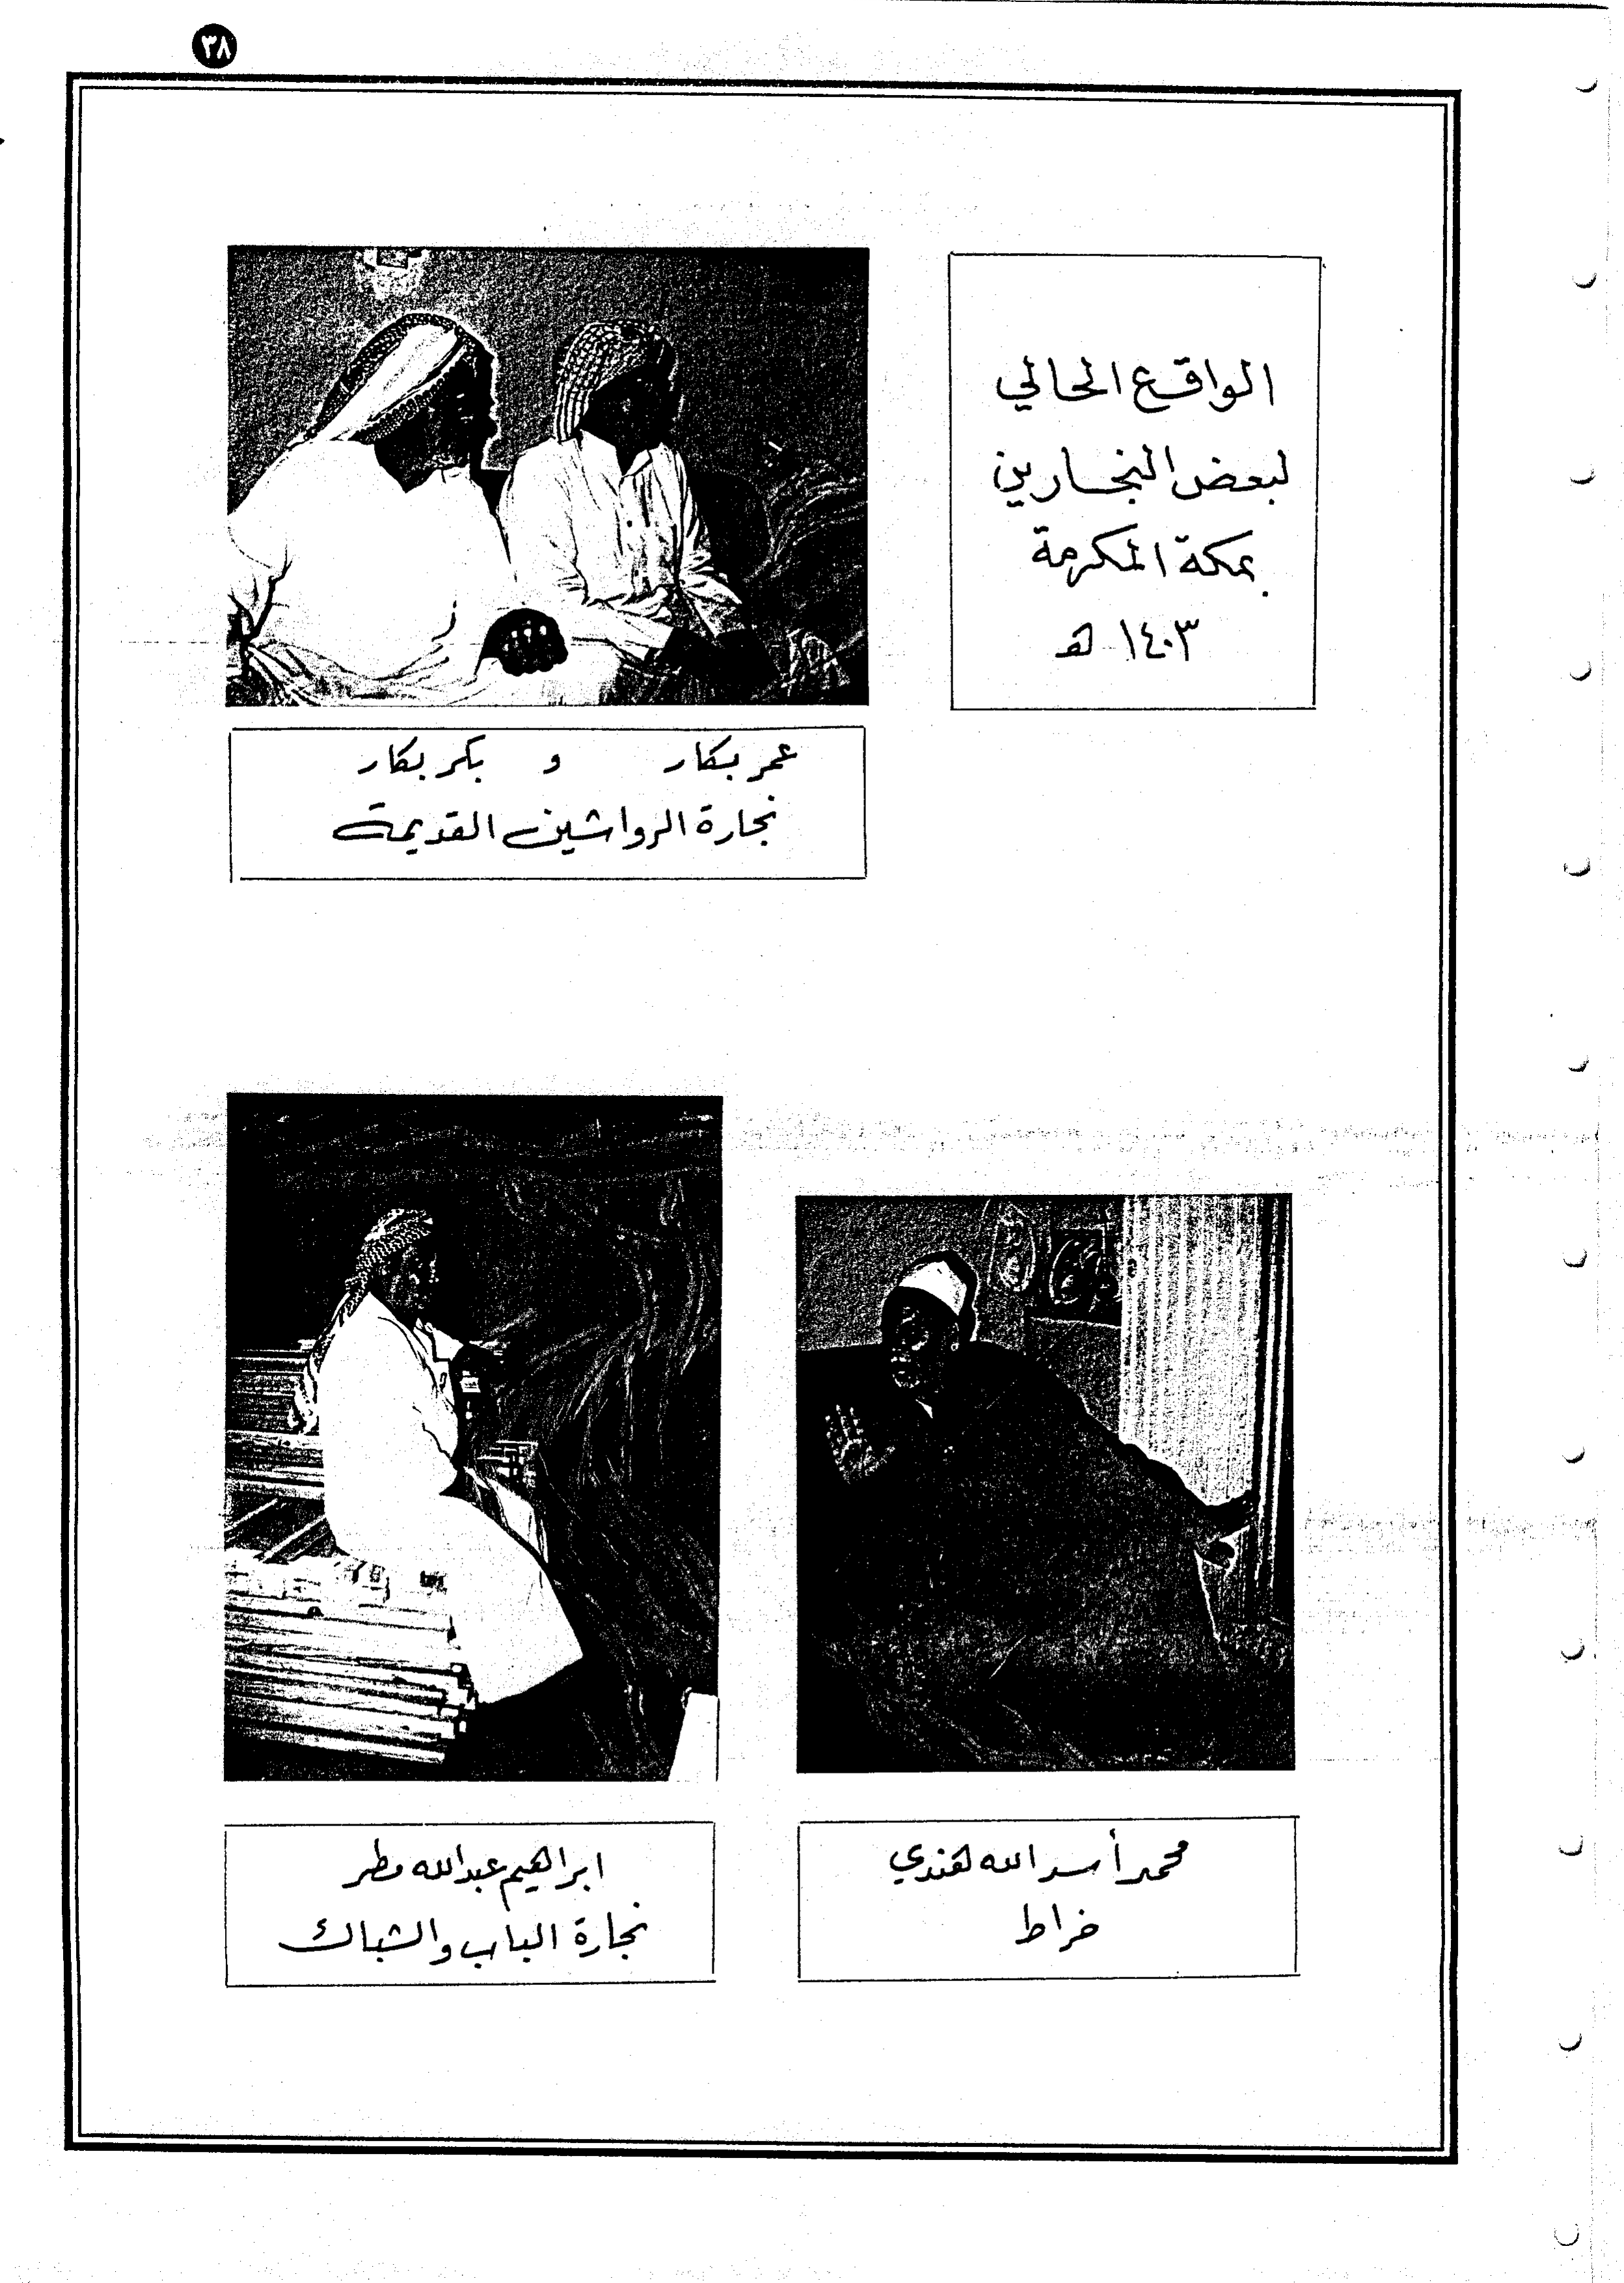 ٣٨
الواقع الحالي
لبعض النجارين
بمكة المكرمة
١٤٠٣ هـ
عمر بكار و بكر بكار
نجارة الرواشين القديمة
محمد أسد الله هندي
خراط
ابراهيم عبدالله مطر
نجارة الباب والشباك